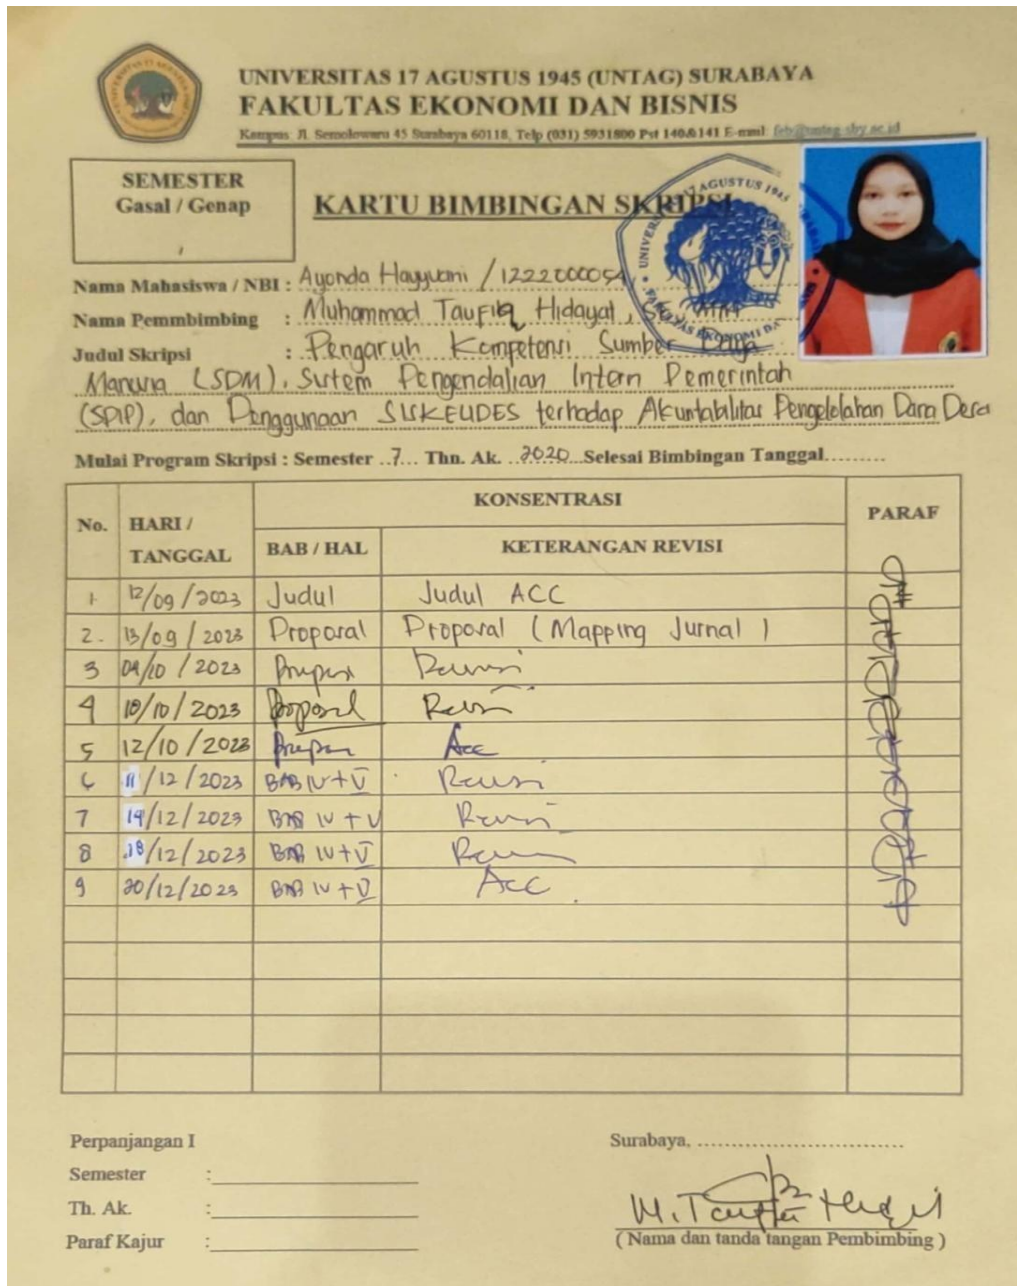 UNIVERSITAS 17 AGUSTUS 1945 (UNTAG) SURABAYA
FAKULTAS EKONOMI DAN BISNIS
Kampus: Jl. Semolowaru 45 Surabaya 60118, Telp (031) 5931800 Pst 140&141 E-mail: feb@untag-sby.ac.id
SEMESTER
Gasal / Genap
KARTU BIMBINGAN SKRIPSI
Nama Mahasiswa / NBI : Ayonda Hayyuni / 1222000054
Nama Pemmbimbing : Muhammad Taufiq Hidayat, SE, MM
Judul Skripsi : Pengaruh Kompetensi Sumber Daya
Manusia (SDM), Sistem Pengendalian Intern Pemerintah
(SPIP), dan Penggunaan SISKEUDES terhadap Akuntabilitas Pengelolahan Dana Desa
Mulai Program Skripsi : Semester ..7... Thn. Ak. ..2020...Selesai Bimbingan Tanggal.........
No. HARI / TANGGAL KONSENTRASI PARAF
BAB / HAL KETERANGAN REVISI
1 12/09/2023 Judul Judul ACC
2. 13/09/2023 Proposal Proposal (Mapping Jurnal)
3 04/10/2023 Proposal Revisi
4 10/10/2023 Proposal Revisi
5 12/10/2023 Proposal Acc
6 11/12/2023 BAB IV+V Revisi
7 14/12/2023 BAB IV+V Revisi
8 18/12/2023 BAB IV+V Revisi
9 20/12/2023 BAB IV+V Acc
Perpanjangan I
Surabaya, ..............................
Semester :
Th. Ak. :
Paraf Kajur :
M. Taufiq Hidayat
( Nama dan tanda tangan Pembimbing )